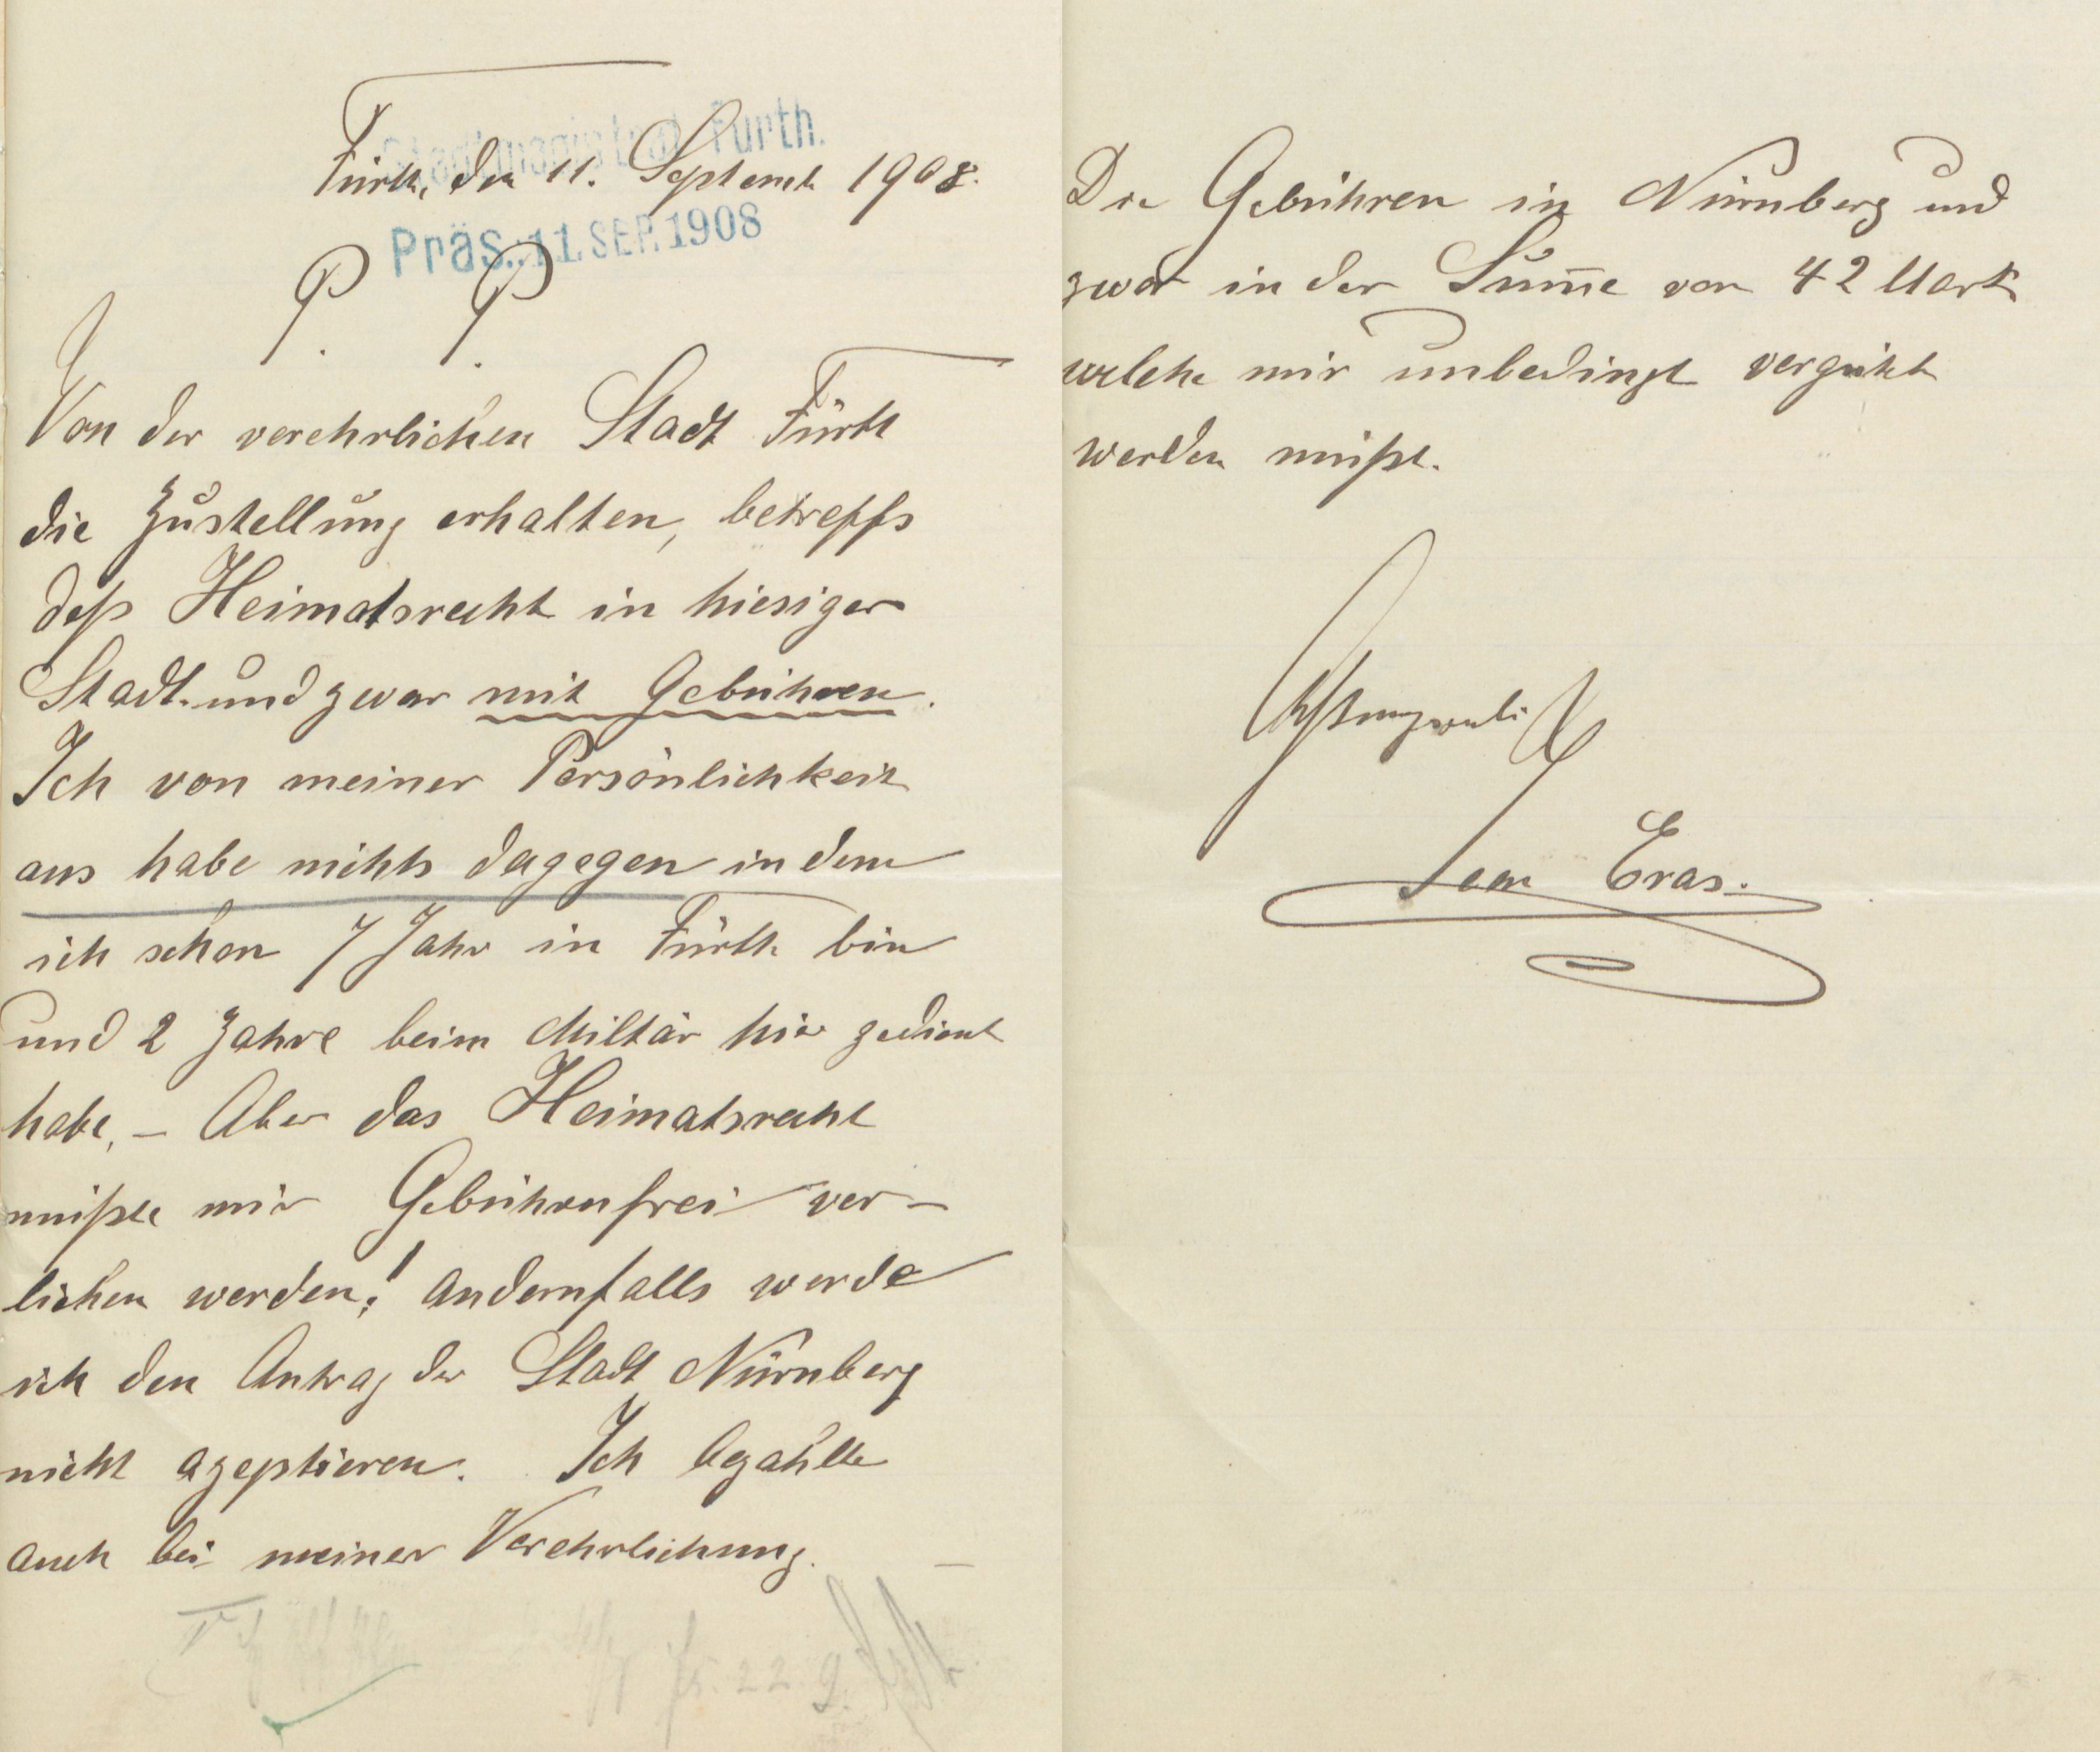 Stadtmagistrat Fürth.
Fürth, den 11. Septemb 1908.
Präs. 11. SEP. 1908
P. P.
Von der verehrlichen Stadt Fürth
die Zustellung erhalten, betreffs
deß Heimatsrecht in hiesiger
Stadt. und zwar mit Gebühren.
Ich von meiner Persönlichkeit
aus habe nichts dagegen indem
ich schon 7 Jahr in Fürth bin
und 2 Jahre beim Miltär hier gedient
habe, – Aber das Heimatsrecht
müßte mir Gebührenfrei ver-
liehen werden! andernfalls werde
ich den Antrag der Stadt Nürnberg
nicht azeptieren. Ich bezahlte
auch bei meiner Verehrlichung. –
fr. 22. 9.
Die Gebühren in Nürnberg und
zwar in der Sum̅e von 42 Mark
welche mir unbedingt vergüthet
werden müßt.
Jean Eras.